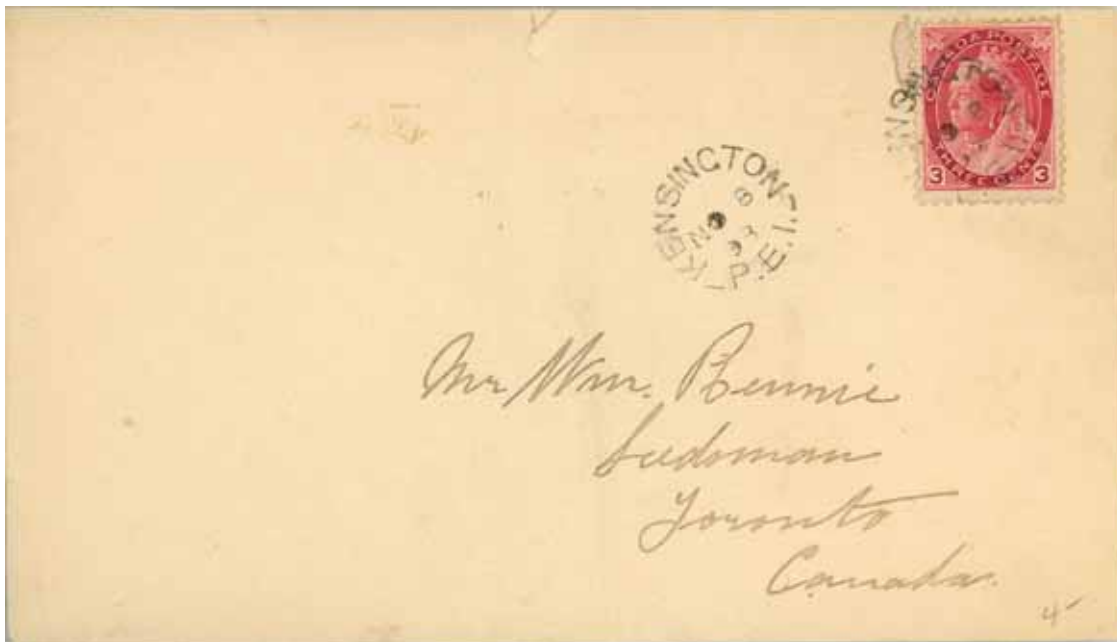 CANADA POSTAGE
THREE CENTS
3 3
KENSINGTON
P.E.I.
Mr Wm. Rennie
Seedsman
Toronto
Canada.